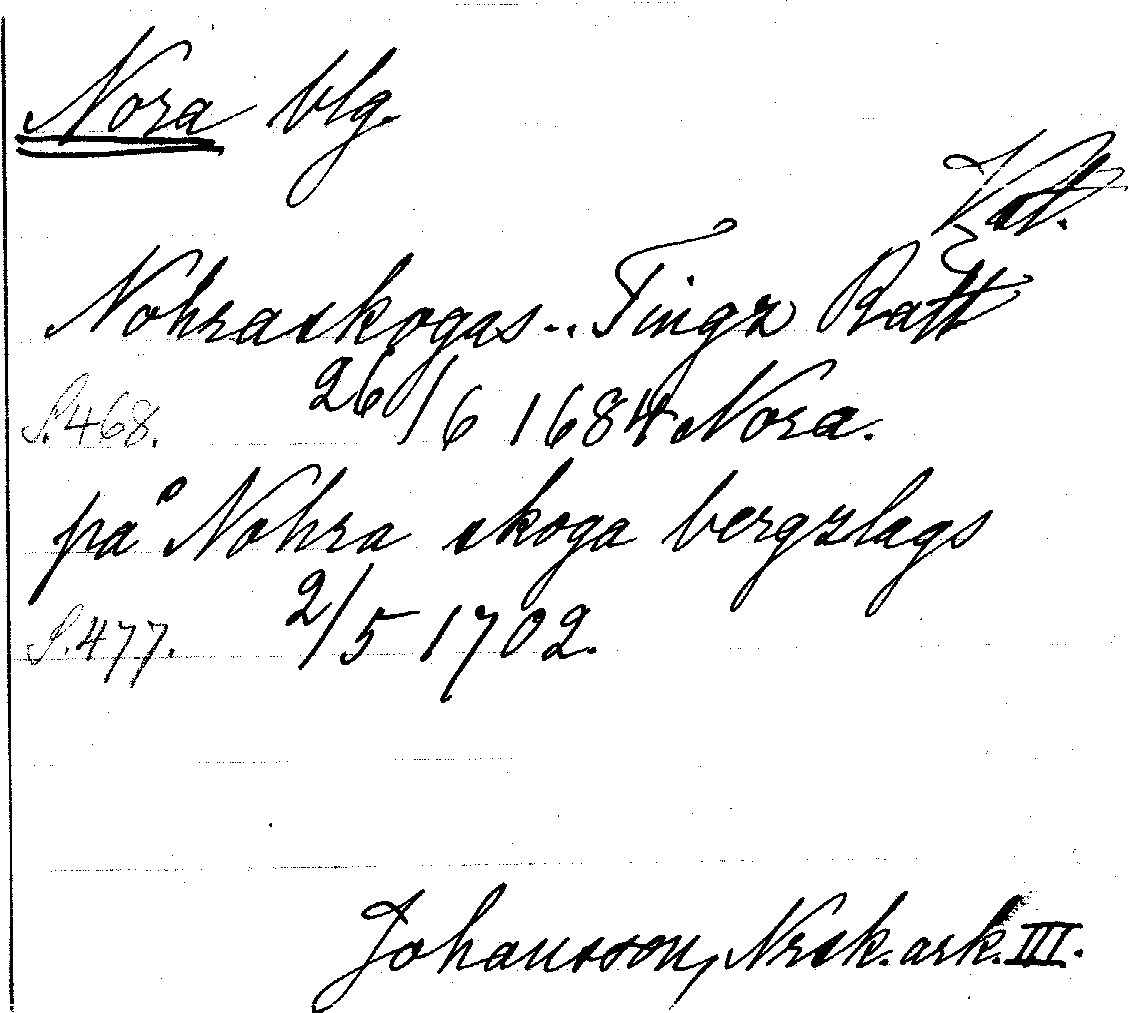 Nora blg.
Vat.
Nohraskogas.. Tingz Rätt
S. 468. 26/6 1684 Nora.
på Nohra skoga bergzlags
S. 477. 2/5 1702.
Johansson, Nrsk. ark. III.